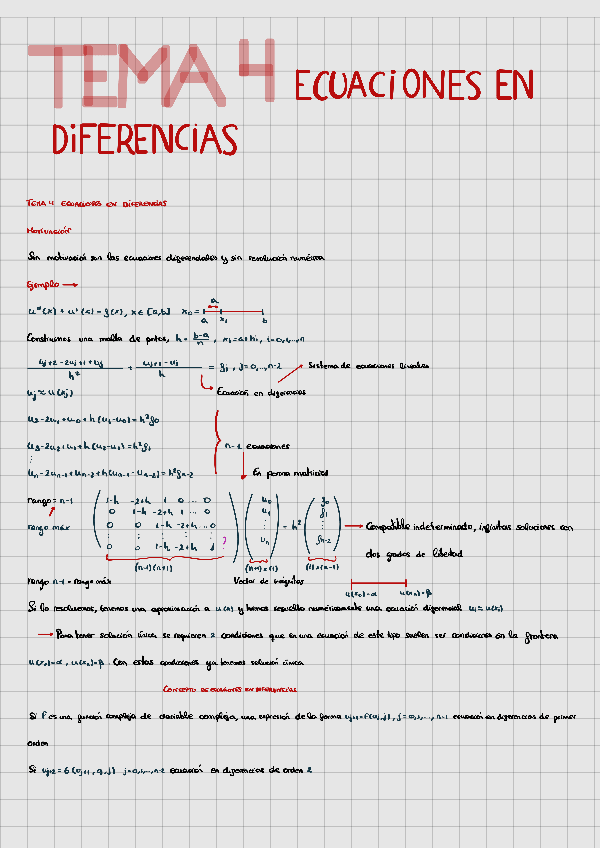 TEMA 4 ECUACIONES EN
DIFERENCIAS
TEMA 4 ECUACIONES EN DIFERENCIAS
Motivación
Su motivación son las ecuaciones diferenciales y su resolución numérica
Ejemplo →
u''(x) + u'(x) = g(x), x ∈ [a,b] x₀ = a x₁ b
Construimos una malla de puntos, h = (b-a)/n, xᵢ = a + hi, i = 0,1,...,n
(uj+2 - 2uj+1 + uj)/h² + (uj+1 - uj)/h = gj, j = 0,...,n-2 → Sistema de ecuaciones lineales
uj ≈ u(xj) Ecuación en diferencias
u₂ - 2u₁ + u₀ + h(u₁ - u₀) = h²g₀
u₃ - 2u₂ + u₁ + h(u₂ - u₁) = h²g₁ n-1 ecuaciones
⋮
un - 2un-1 + un-2 + h(un-1 - un-2) = h²gn-2 En forma matricial
rango = n-1 1-h -2+h 1 0 ... 0 u₀ g₀
0 1-h -2+h 1 ... 0 u₁ g₁
rango máx 0 0 1-h -2+h ... 0 ⋮ = h² ⋮ → Compatible indeterminado, infinitas soluciones con
0 0 1-h -2+h 1 un gn-2 dos grados de libertad
(n-1)(n+1) (n+1)×(1) (1)×(n-1)
rango n-1 = rango máx Vector de incógnitas u(x₀)=α u(xn)=β
Si lo resolvemos, tenemos una aproximación a u(x) y hemos resuelto numéricamente una ecuación diferencial uj ≈ u(xj)
→ Para tener solución única se requieren 2 condiciones que en una ecuación de este tipo suelen ser condiciones en la frontera
u(x₀)=α, u(xn)=β. Con estas condiciones ya tenemos solución única
CONCEPTO DE ECUACIONES EN DIFERENCIAS
Si F es una función compleja de variable compleja, una expresión de la forma uj+1 = F(uj, j), j = 0,1,...,n-1 ecuación en diferencias de primer
orden
Si uj+2 = G(uj+1, uj, j) j = 0,1,...,n-2 ecuación en diferencias de orden 2